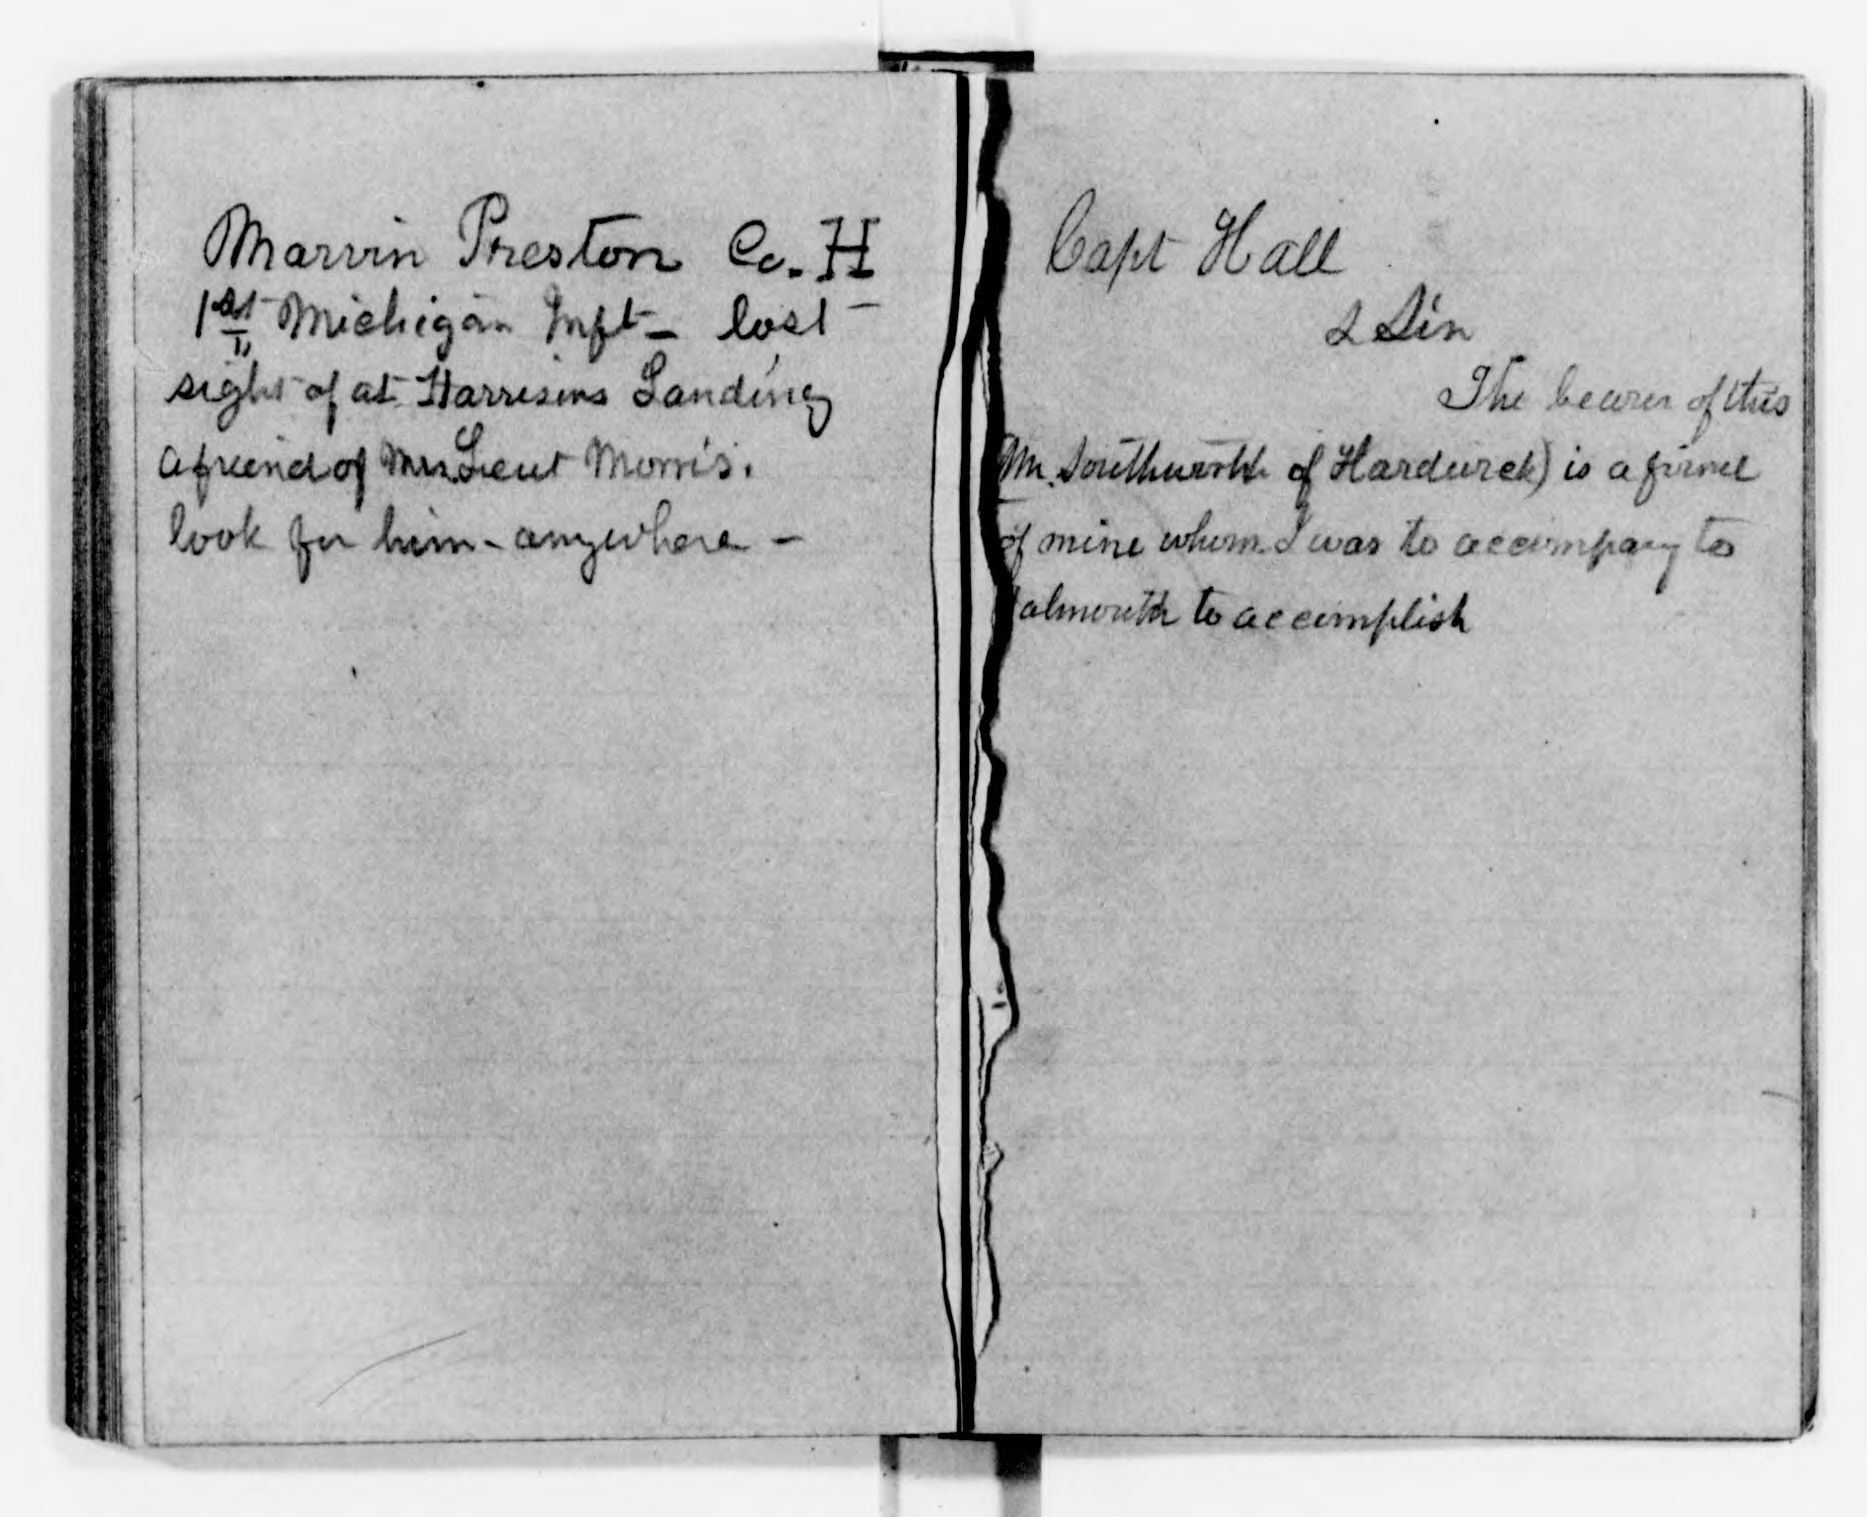 Marvin Preston Co. H
1st Michigan Inft - lost
sight of at Harrisons Landing
a friend of Mrs. Lieut Morris.
look for him - anywhere -
Capt Hall
Sir
The bearer of this
Mr. Southworth of Hardwick) is a
of mine whom I was to accompany to
Falmouth to accomplish